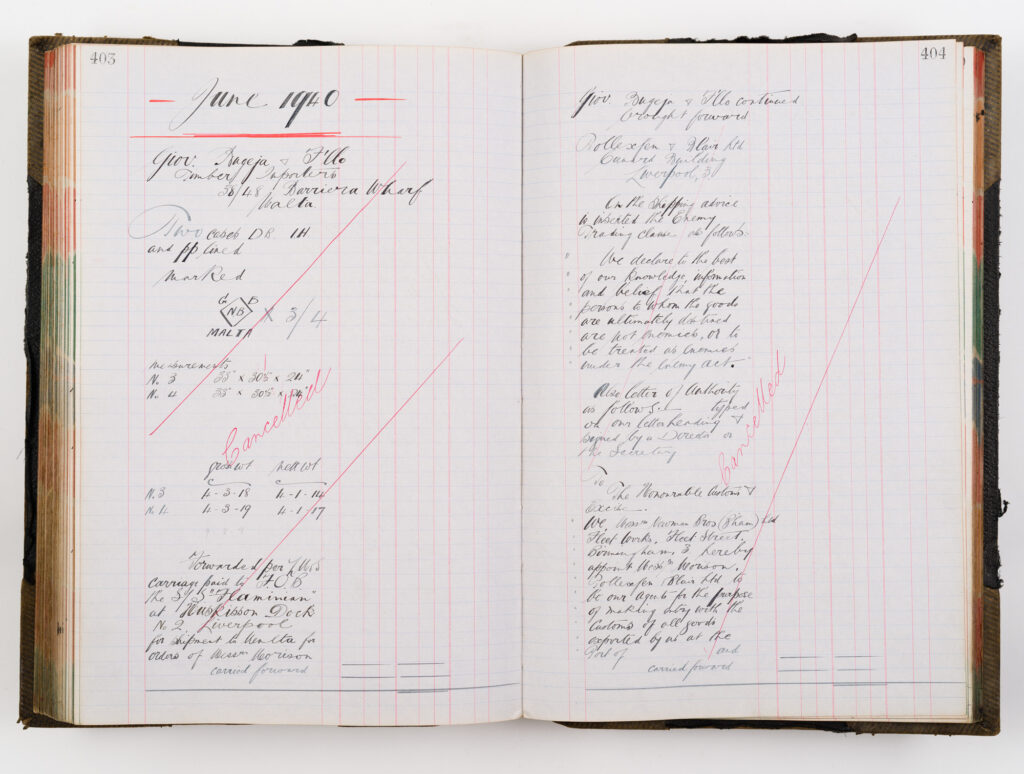 403
June 1940
Giov. Bugeja & F'llo
Timber Importers
38/48 Barriera Wharf
Malta
Two cases DR 1H
and pp lined
marked
G B
NB X 3/4
MALTA
measurements
No. 3 33" x 30½" x 24"
No. 4 33" x 30½" x 24"
Cancelled
gross wt nett wt
No. 3 4-3-18 4-1-14
No. 4 4-3-19 4-1-17
Forwarded per LMS
carriage paid by FOB
the S/S "Flaminian"
at Huskisson Dock
No 2. Liverpool
for shipment to Malta for
orders of Messrs Morison
carried forward
404
Giov. Bugeja & F'llo continued
brought forward
Pollexfen & Blair Ltd
Cunard Building
Liverpool, 3
On the shipping advice
is inserted the Enemy
Trading clause as follows.
" We declare to the best
" of our knowledge, information
" and belief that the
" persons to whom the goods
" are ultimately destined
" are not enemies, or to
" be treated as enemies
" under the Enemy Act."
Also letter of Authority
as follows:- typed
on our letterheading &
signed by a Director or
the Secretary
Cancelled
To
The Honourable Customs &
Excise.
We, Messrs Newman Bros (B'ham) Ltd
Fleet Works, Fleet Street,
Birmingham 3 hereby
appoint Messrs Morison,
Pollexfen & Blair Ltd to
be our agents for the purpose
of making entry with the
Customs of all goods
exported by us at the
Port of and
carried forward